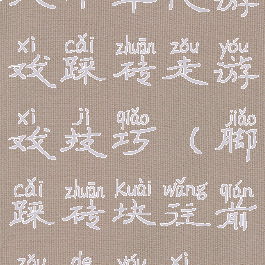 游
xì cǎi zhuān zǒu yóu
戏踩砖走游
xì jì qiǎo jiǎo
戏技巧（脚
cǎi zhuān kuài wǎng qián
踩砖块往前
zǒu de yóu xì